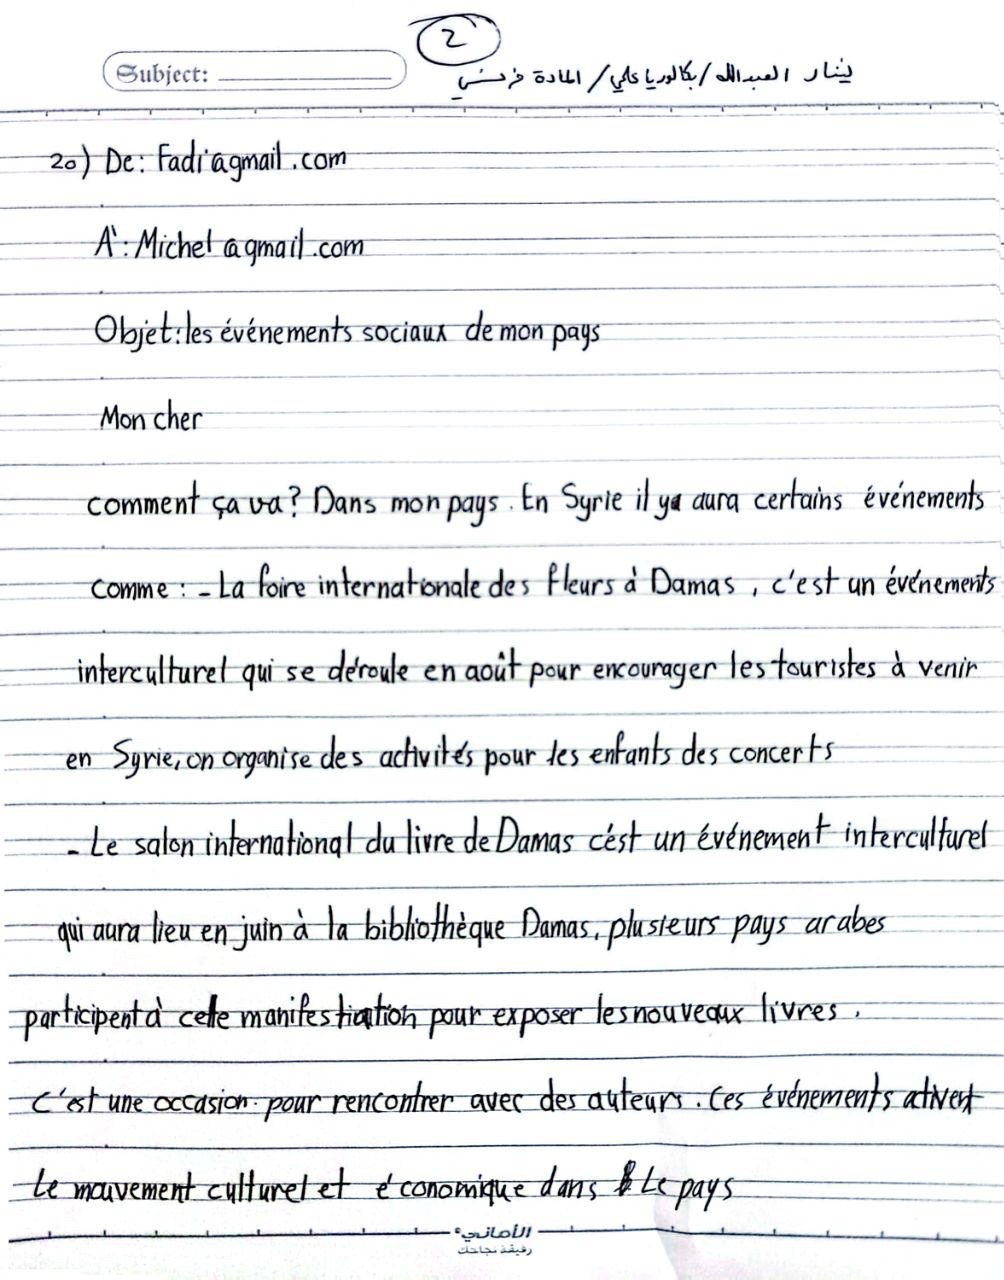 2
Subject:
لينار العبدالله / بكالوريا علمي / المادة فرنسي
20) De: Fadi@gmail.com
À: Michel@gmail.com
Objet: les événements sociaux de mon pays
Mon cher
comment ça va? Dans mon pays. En Syrie il ya aura certains événements
comme : - La foire internationale des fleurs à Damas, c'est un événements
interculturel qui se déroule en août pour encourager les touristes à venir
en Syrie, on organise des activités pour les enfants des concerts
- Le salon international du livre de Damas c'est un événement interculturel
qui aura lieu en juin à la bibliothèque Damas, plusieurs pays arabes
participent à cette manifestiation pour exposer les nouveaux livres.
C'est une occasion pour rencontrer avec des auteurs. Ces événements ativent
le mouvement culturel et économique dans Le pays
الأماني
رفيقة نجاحك